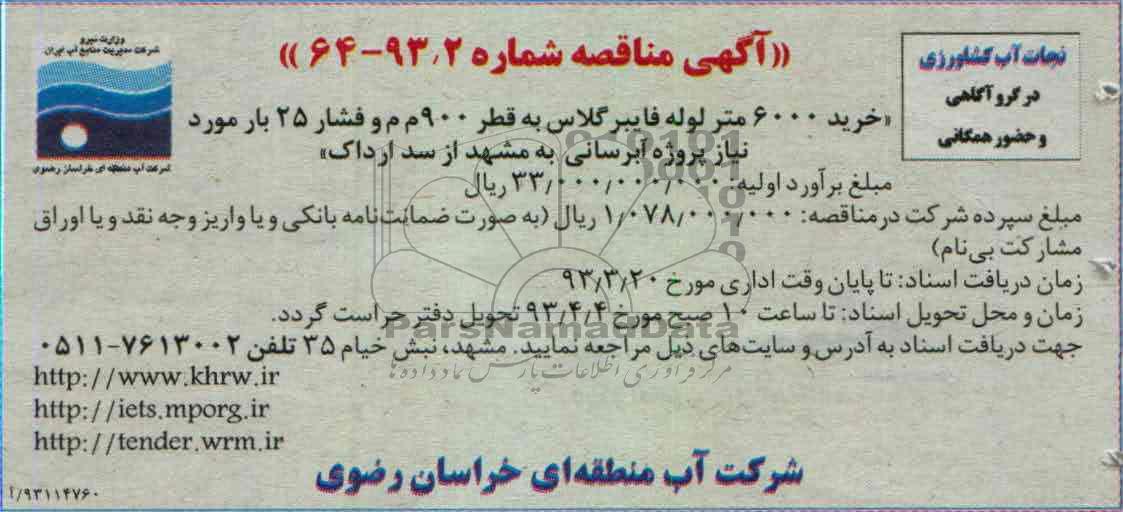 وزارت نیرو
شرکت مدیریت منابع آب ایران
شرکت آب منطقه ای خراسان رضوی
«آگهی مناقصه شماره ۹۳٫۲-۶۴»
نجات آب کشاورزی
در گرو آگاهی
و حضور همگانی
«خرید ۶۰۰۰ متر لوله فایبرگلاس به قطر ۹۰۰ م م و فشار ۲۵ بار مورد
نیاز پروژه آبرسانی به مشهد از سد ارداک»
مبلغ برآورد اولیه: ۳۳٫۰۰۰٫۰۰۰٫۰۰۰ ریال
مبلغ سپرده شرکت در مناقصه: ۱٫۰۷۸٫۰۰۰٫۰۰۰ ریال (به صورت ضمانت‌نامه بانکی و یا واریز وجه نقد و یا اوراق
مشارکت بی‌نام)
زمان دریافت اسناد: تا پایان وقت اداری مورخ ۹۳٫۳٫۲۰
زمان و محل تحویل اسناد: تا ساعت ۱۰ صبح مورخ ۹۳٫۴٫۴ تحویل دفتر حراست گردد.
جهت دریافت اسناد به آدرس و سایت‌های ذیل مراجعه نمایید. مشهد، نبش خیام ۳۵ تلفن ۷۶۱۳۰۰۲-۰۵۱۱
http://www.khrw.ir
http://iets.mporg.ir
http://tender.wrm.ir
شرکت آب منطقه‌ای خراسان رضوی
۹۳۱۱۴۷۶۰/آ
ParsNamadData
مرکز فرآوری اطلاعات پارس نماد داده ها